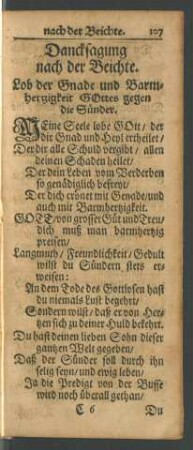 nach der Beichte. 107
Dancksagung
nach der Beichte.
Lob der Gnade und Barm-
hertzigkeit GOttes gegen
die Sünder.
MEine Seele lobe GOtt / der
dir Gnad und Heyl ertheilet /
Der dir alle Schuld vergibt / allen
deinen Schaden heilet /
Der dein Leben vom Verderben
so genädiglich befreyt /
Der dich crönet mit Genade / und
auch mit Barmhertzigkeit.
GOTT / von grosser Güt und Treu /
dich muß man barmhertzig
preisen /
Langmuth / Freundlichkeit / Gedult
wilst du Sündern stets er-
weisen:
An dem Tode des Gottlosen hast
du niemals Lust begehrt /
Sondern wilst / daß er von Her-
tzen sich zu deiner Huld bekehrt.
Du hast deinen lieben Sohn dieser
gantzen Welt gegeben /
Daß der Sünder soll durch ihn
selig seyn / und ewig leben /
Ja die Predigt von der Busse
wird noch überall gethan /
C 6 Du